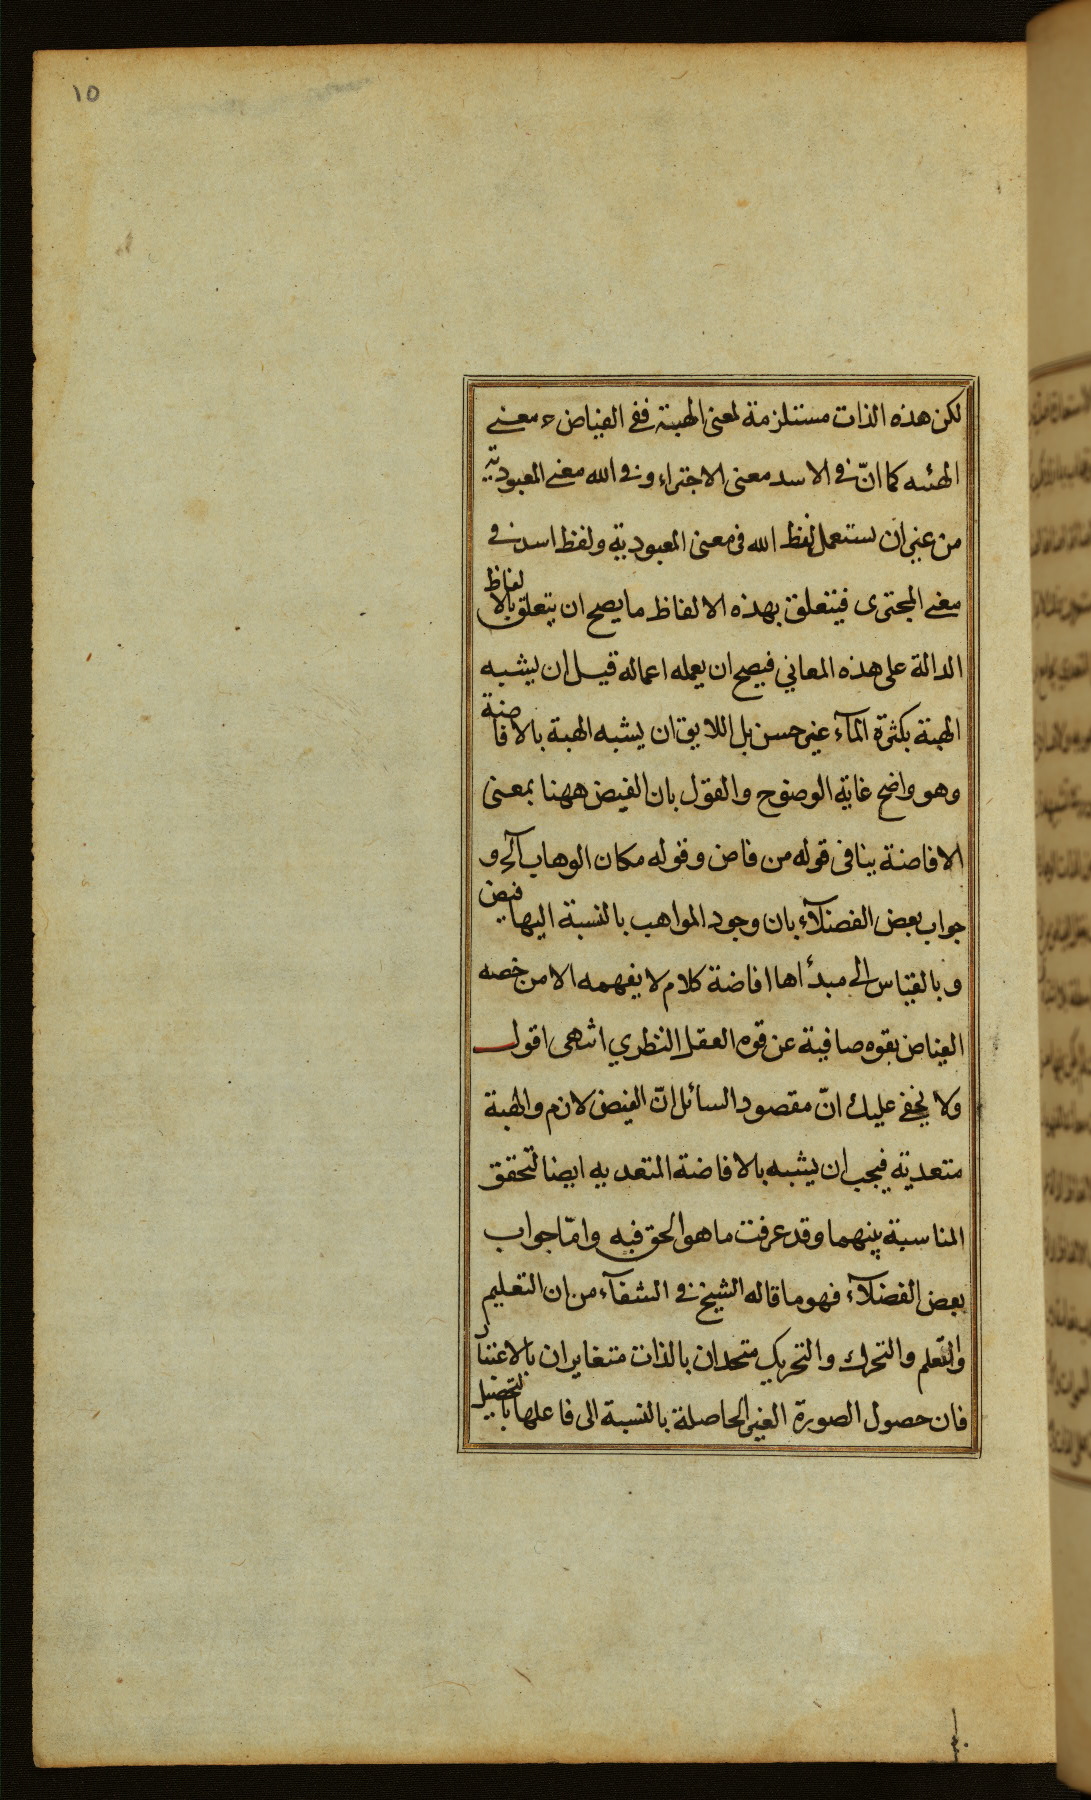 ١٥
لكن هذه الذات مستلزمة لمعنى الهبة ففي الفياض ح معنى
الهبه كما انّ في الاسد معنى الاجتراء وفي الله معنى المعبودية
من غير ان يستعمل لفظ الله في معنى المعبودية ولفظ اسد في
معنى المجترى فيتعلق بهذه الالفاظ ما يصح ان يتعلق بالالفاظ
الدالة على هذه المعاني فيصح ان يعمله اعماله قيل ان يشبه
الهبة بكثرة المآء غير حسن بل اللايق ان يشبه الهبة بالافاضة
وهو واضح غاية الوضوح والقول بان الفيض ههنا بمعنى
الافاضة ينافى قوله من فاض وقوله مكان الوهاب آلخ و
جواب بعض الفضلآء بان وجود المواهب بالنسبة اليها فيض
وبالقياس الى مبدأها افاضة كلام لا يفهمه الا من خصه
الفياض بقوه صافية عن قوه العقل النظري انتهى اقول
ولا يخفى عليك انّ مقصود السائل انّ الفيض لازم والهبة
متعدية فيجب ان يشبه بالافاضة المتعديه ايضا لتحقق
المناسبة بينهما وقد عرفت ما هو الحق فيه وامّا جواب
بعض الفضلآء فهو ما قاله الشيخ في الشفآء من ان التعليم
والتّعلم والتحرك والتحريك متحدان بالذات متغايران بالاعتبار
فان حصول الصورة الغير الحاصلة بالنسبة الى فاعلها بالتحصيل